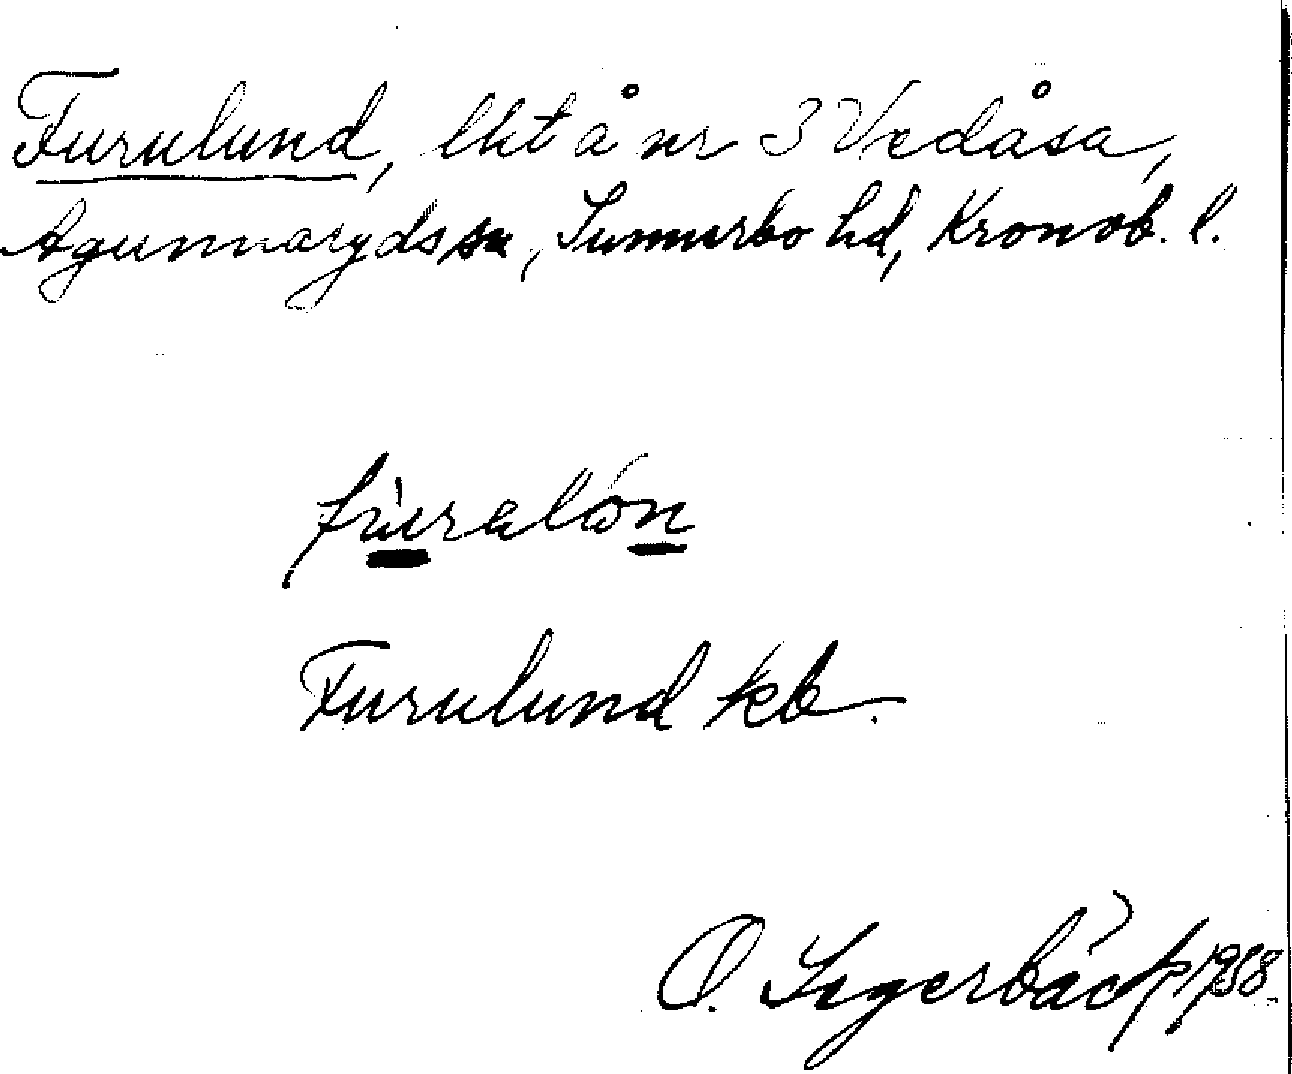 Furulund, lht å nr 3 Vedåsa,
Agunnaryds sn, Sunnerbo hd, Kronob. l.
fùralón
Furulund kb.
O. Segerbäck 1958